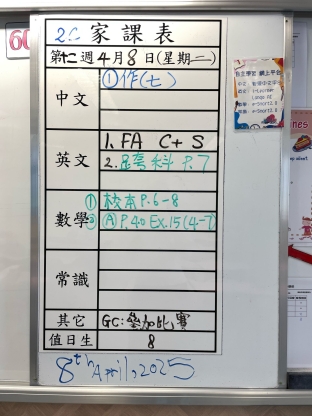 2C 家課表
第十二週 4月8日(星期二)
中文 ①作(七)
英文 1. FA C+S
2. 跨科 P.7
數學 ① 校本 P.6-8
② (A) P.40 Ex.15(4-7)
常識
其它 GC: 參加比賽
值日生 8
8th April, 2025
自主學習 網上平台